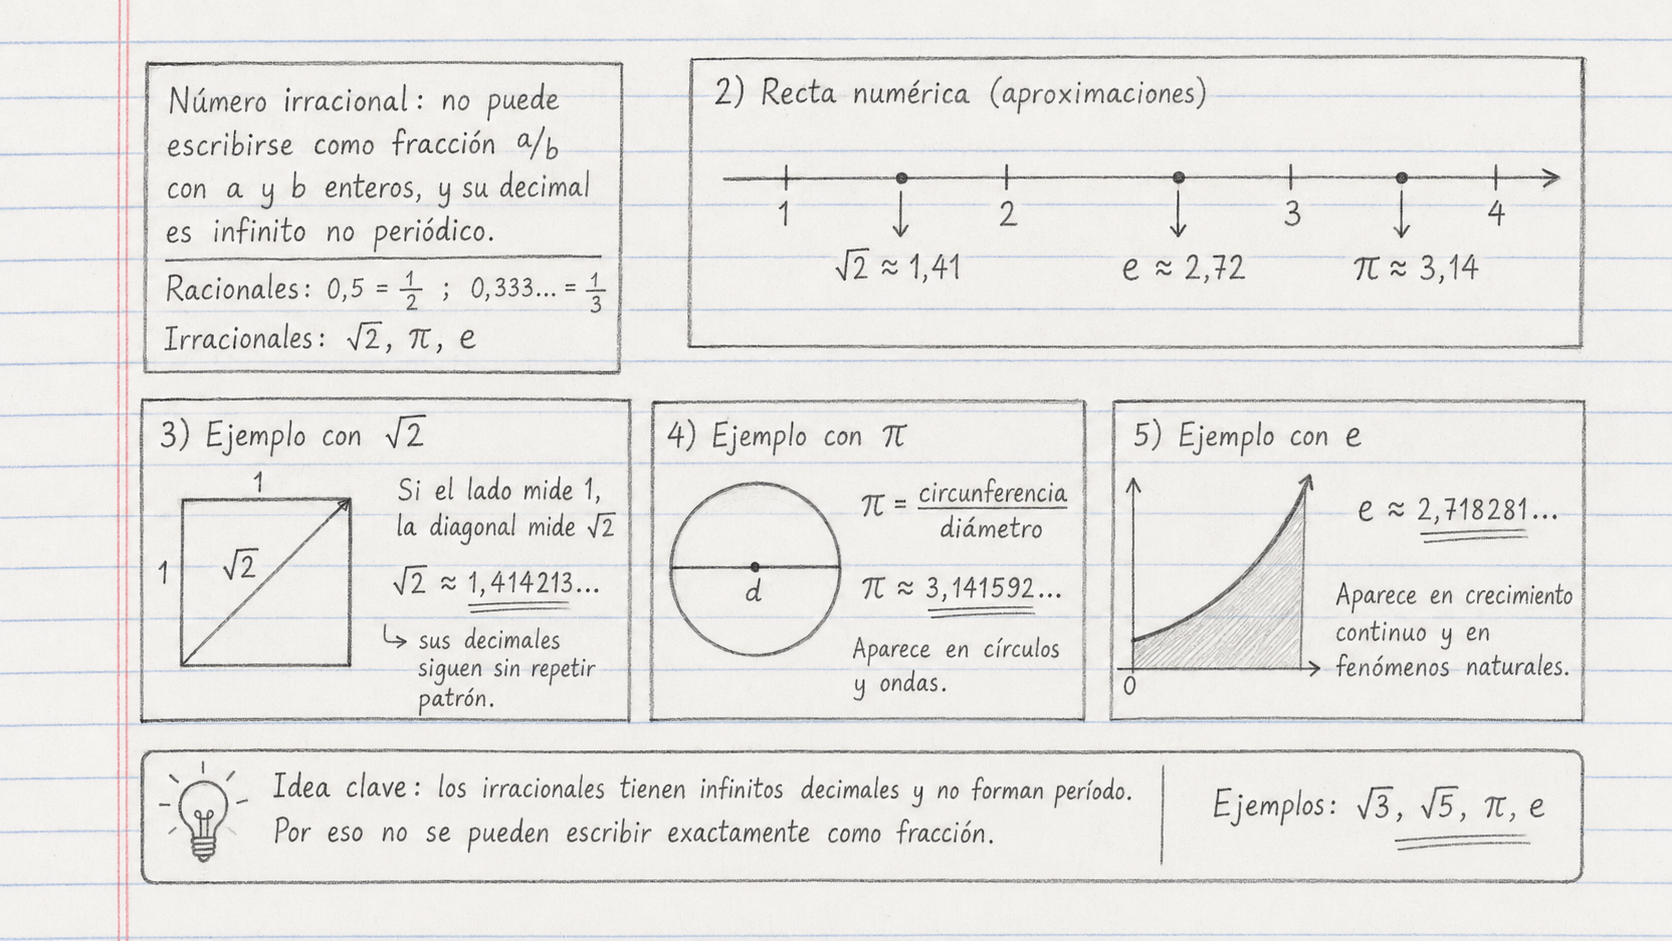 Número irracional: no puede
escribirse como fracción a/b
con a y b enteros, y su decimal
es infinito no periódico.
Racionales: 0,5 = 1/2 ; 0,333... = 1/3
Irracionales: √2, π, e
2) Recta numérica (aproximaciones)
1 2 3 4
√2 ≈ 1,41 e ≈ 2,72 π ≈ 3,14
3) Ejemplo con √2
1
1
√2
Si el lado mide 1,
la diagonal mide √2
√2 ≈ 1,414213...
↳ sus decimales
siguen sin repetir
patrón.
4) Ejemplo con π
d
π = circunferencia/diámetro
π ≈ 3,141592...
Aparece en círculos
y ondas.
5) Ejemplo con e
0
e ≈ 2,718281...
Aparece en crecimiento
continuo y en
fenómenos naturales.
Idea clave: los irracionales tienen infinitos decimales y no forman período.
Por eso no se pueden escribir exactamente como fracción.
Ejemplos: √3, √5, π, e